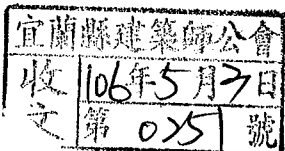 宜蘭縣建築師公會
收文
106年5月27日
第 0251 號